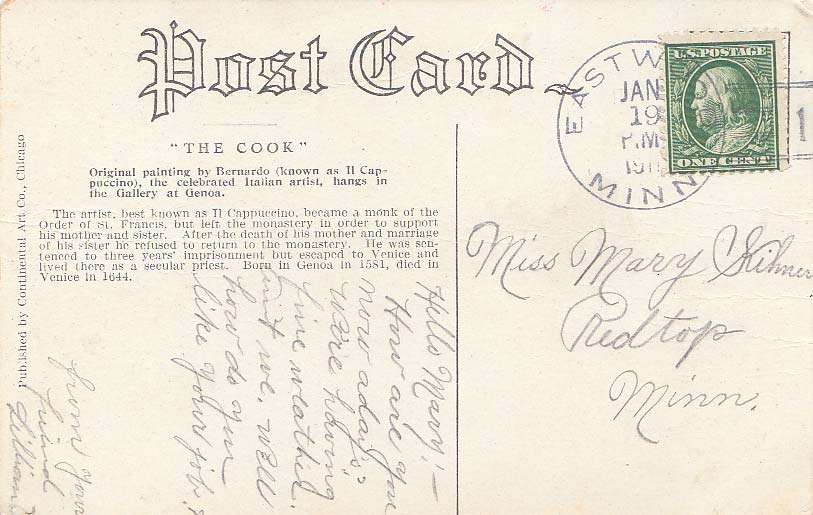 Post Card
"THE COOK"
Original painting by Bernardo (known as Il Cap-
puccino), the celebrated Italian artist, hangs in
the Gallery at Genoa.
The artist, best known as Il Cappuccino, became a monk of the
Order of St. Francis, but left the monastery in order to support
his mother and sister. After the death of his mother and marriage
of his sister he refused to return to the monastery. He was sen-
tenced to three years' imprisonment but escaped to Venice and
lived there as a secular priest. Born in Genoa in 1581, died in
Venice in 1644.
Published by Continental Art Co., Chicago
Hello Mary! —
How are you
now adays
we're having
fine weather.
aint we. well
how do you
like your job?
from your
friend
Lillian
EASTW
JAN
19
P.M.
191
MINN
U.S. POSTAGE
ONE CENT
1
Miss Mary
Redtop
Minn.